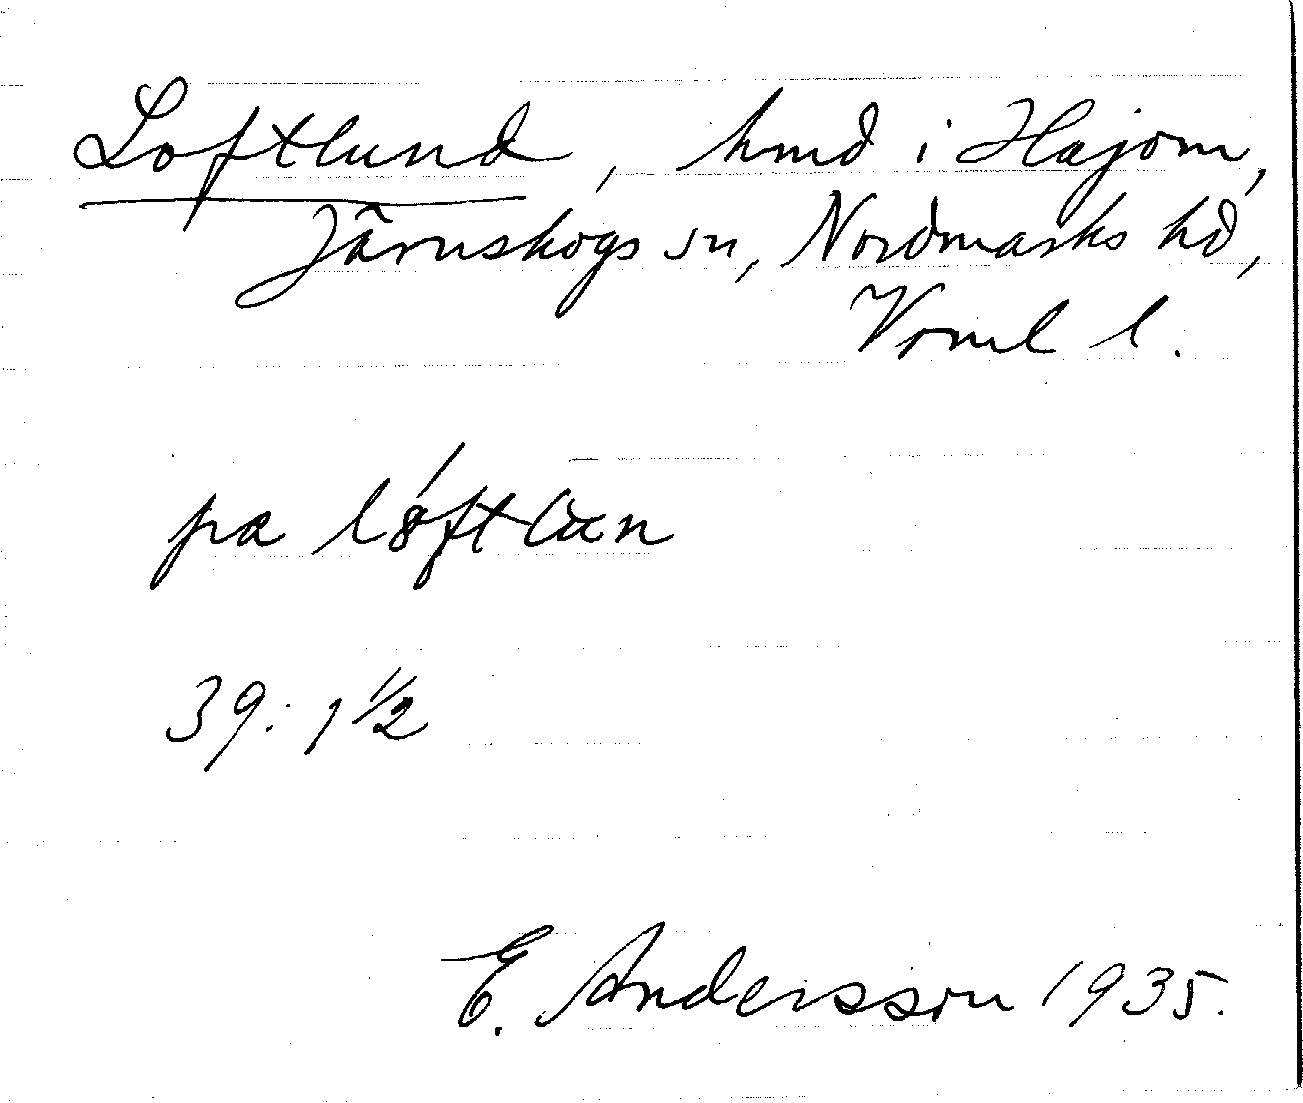 Loftlund, hmd i Hajom,
Järnskogs sn, Nordmarks hd,
Vrml l.
pa lóftlun
39: 1 ½
E. Andersson 1935.